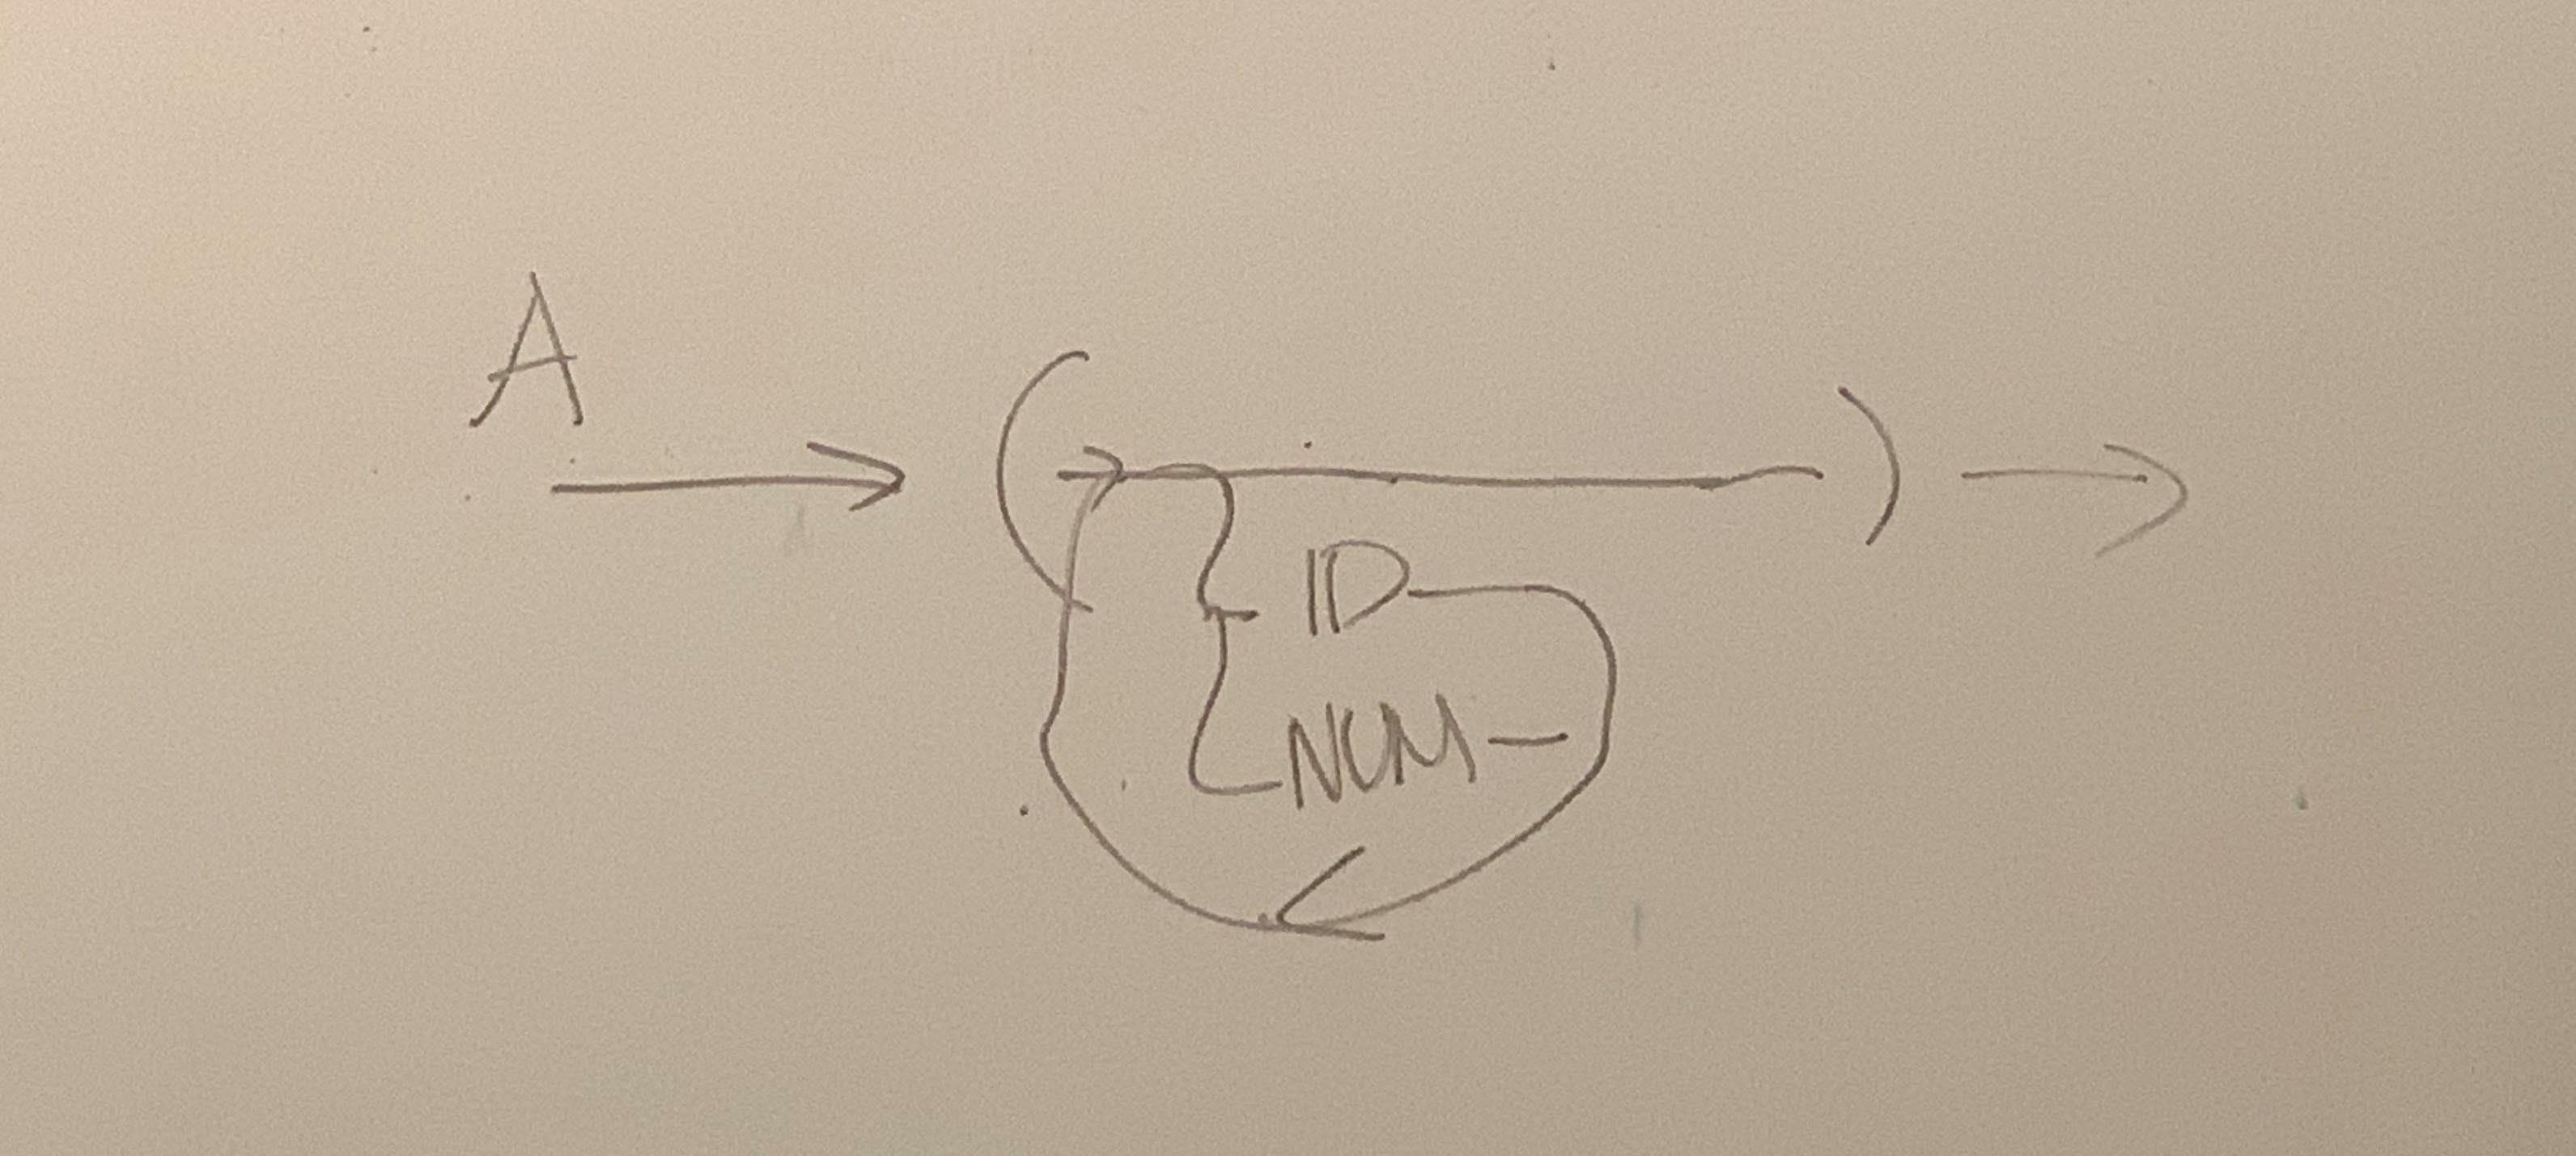 A
( )
ID
NUM